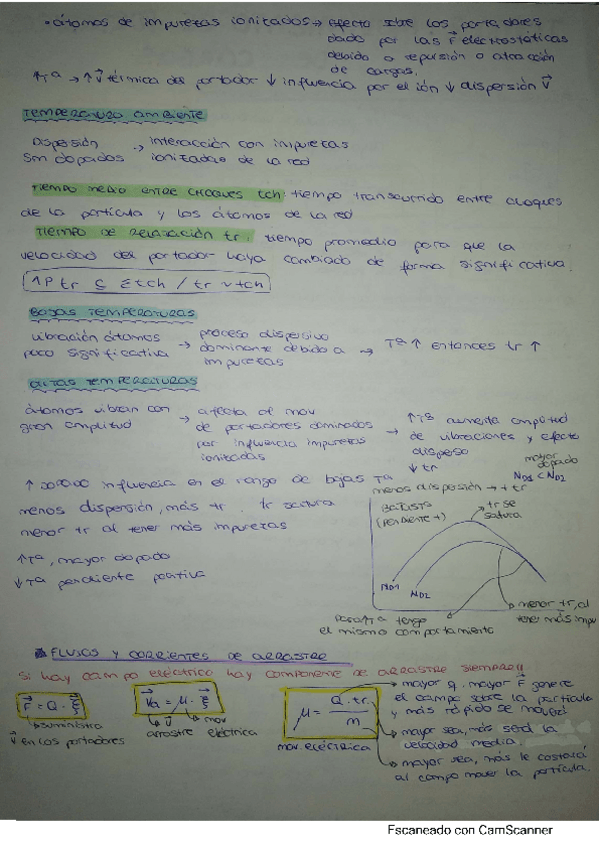 • átomos de impurezas ionizados → efecto sobre los portadores
dado por las F electrostáticas
debido a repulsión o atracción
de cargas.
↑Tª → ↑ v⃗ térmica del portador ↓ influencia por el ión ↓ dispersión v⃗
TEMPERATURA AMBIENTE
Dispersión → interacción con impurezas
Sm dopados ionizadas de la red
TIEMPO MEDIO ENTRE CHOQUES tch: tiempo transcurrido entre choques
de la partícula y los átomos de la red
TIEMPO DE RELAJACIÓN tr: tiempo promedio para que la
velocidad del portador haya cambiado de forma significativa.
tr tch / tr tch
BAJAS TEMPERATURAS
vibración átomos → proceso dispersivo → Tª ↑ entonces tr ↑
poco significativa dominante debido a
impurezas
ALTAS TEMPERATURAS
átomos vibran con → afecta al mov → ↑Tª aumenta amplitud
gran amplitud de portadores dominados de vibraciones y efecto
por influencia impurezas disperso
ionizadas ↓ tr
mayor
dopado
ND1 < ND2
↑ dopado influencia en el rango de bajas Tª
menos dispersión → + tr
menos dispersión, más tr. tr satura
menor tr al tener más impurezas
BAJAS Tª
(PENDIENTE +)
tr se
satura
↑Tª, mayor dopado
↓Tª pendiente positiva
ND1
ND2
menor tr, al
tener más impu
Para ↑Tª tengo
el mismo comportamiento
FLUJOS Y CORRIENTES DE ARRASTRE
Si hay campo eléctrico hay componente de ARRASTRE SIEMPRE!!
F⃗ = Q · ξ⃗
suministra
v⃗ en los portadores
v⃗a = μ · ξ⃗
v⃗ mov
arrastre eléctrica
μ = Q · tr / m
mov. eléctrica
→ mayor q, mayor F⃗ genere
el campo sobre la partícula
y más rápido se moverá
→ mayor sea, más será la
velocidad media.
→ mayor sea, más le costará
al campo mover la partícula.
Escaneado con CamScanner